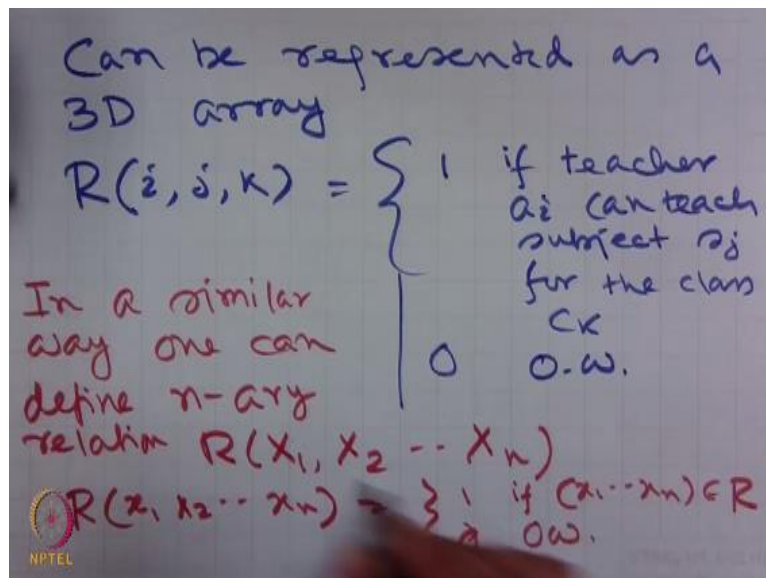 Can be represented as a
3D array
R(i, j, k) = { 1 if teacher
ai can teach
subject sj
for the class
Ck
0 O.W.
In a similar
way one can
define n-ary
relation R(X1, X2 -- Xn)
R(x1 x2 -- xn) = } 1 if (x1 -- xn) ∈ R
OW.
NPTEL